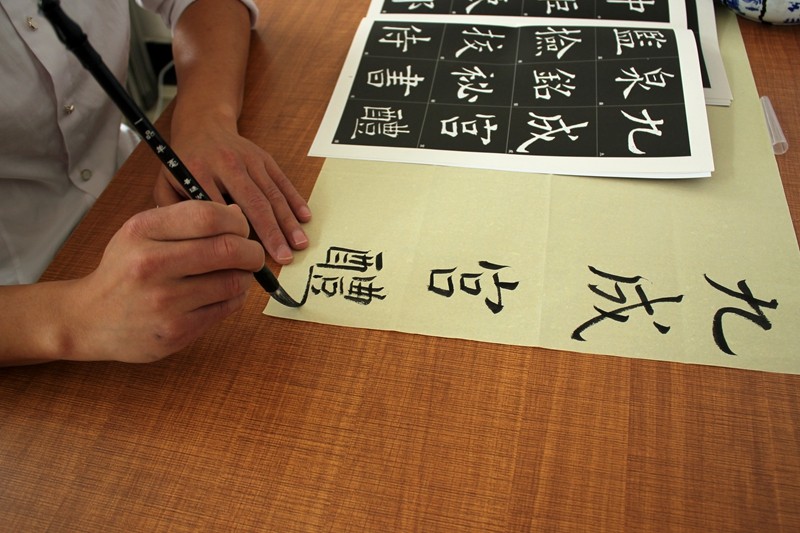 九成宮醴
九成宮醴
泉銘祕書
監撿校侍